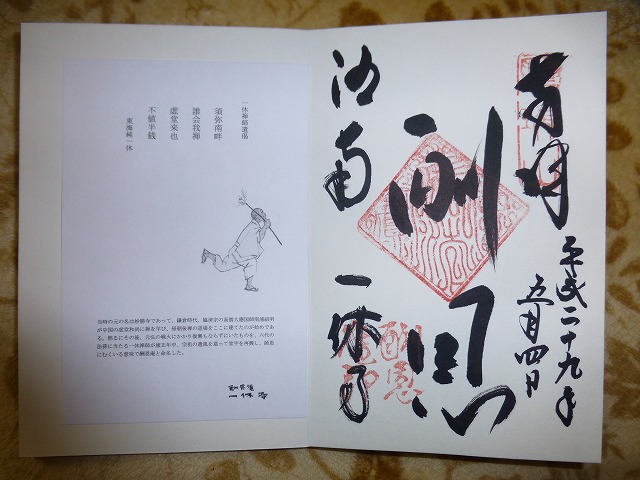 奉拝
平成二十九年
五月四日
酬恩
洛南
一休寺
酬恩
一休禅師遺偈
須弥南畔
誰会我禅
虚堂来也
不値半銭
東海純一休
当時の元の名は妙勝寺であって、鎌倉時代、臨済宗の高僧大應国師南浦紹明
が中国の虚堂和尚に禅を学び、帰朝後禅の道場をここに建てたのが始めであ
る。然るにその後、元弘の戦火にかかり復興もならずにいたものを、六代の
法孫に当たる一休禅師が康正年中、宗祖の遺風を慕って堂宇を再興し、師恩
にむくいる意味で酬恩庵と命名した。
酬恩庵
一休寺